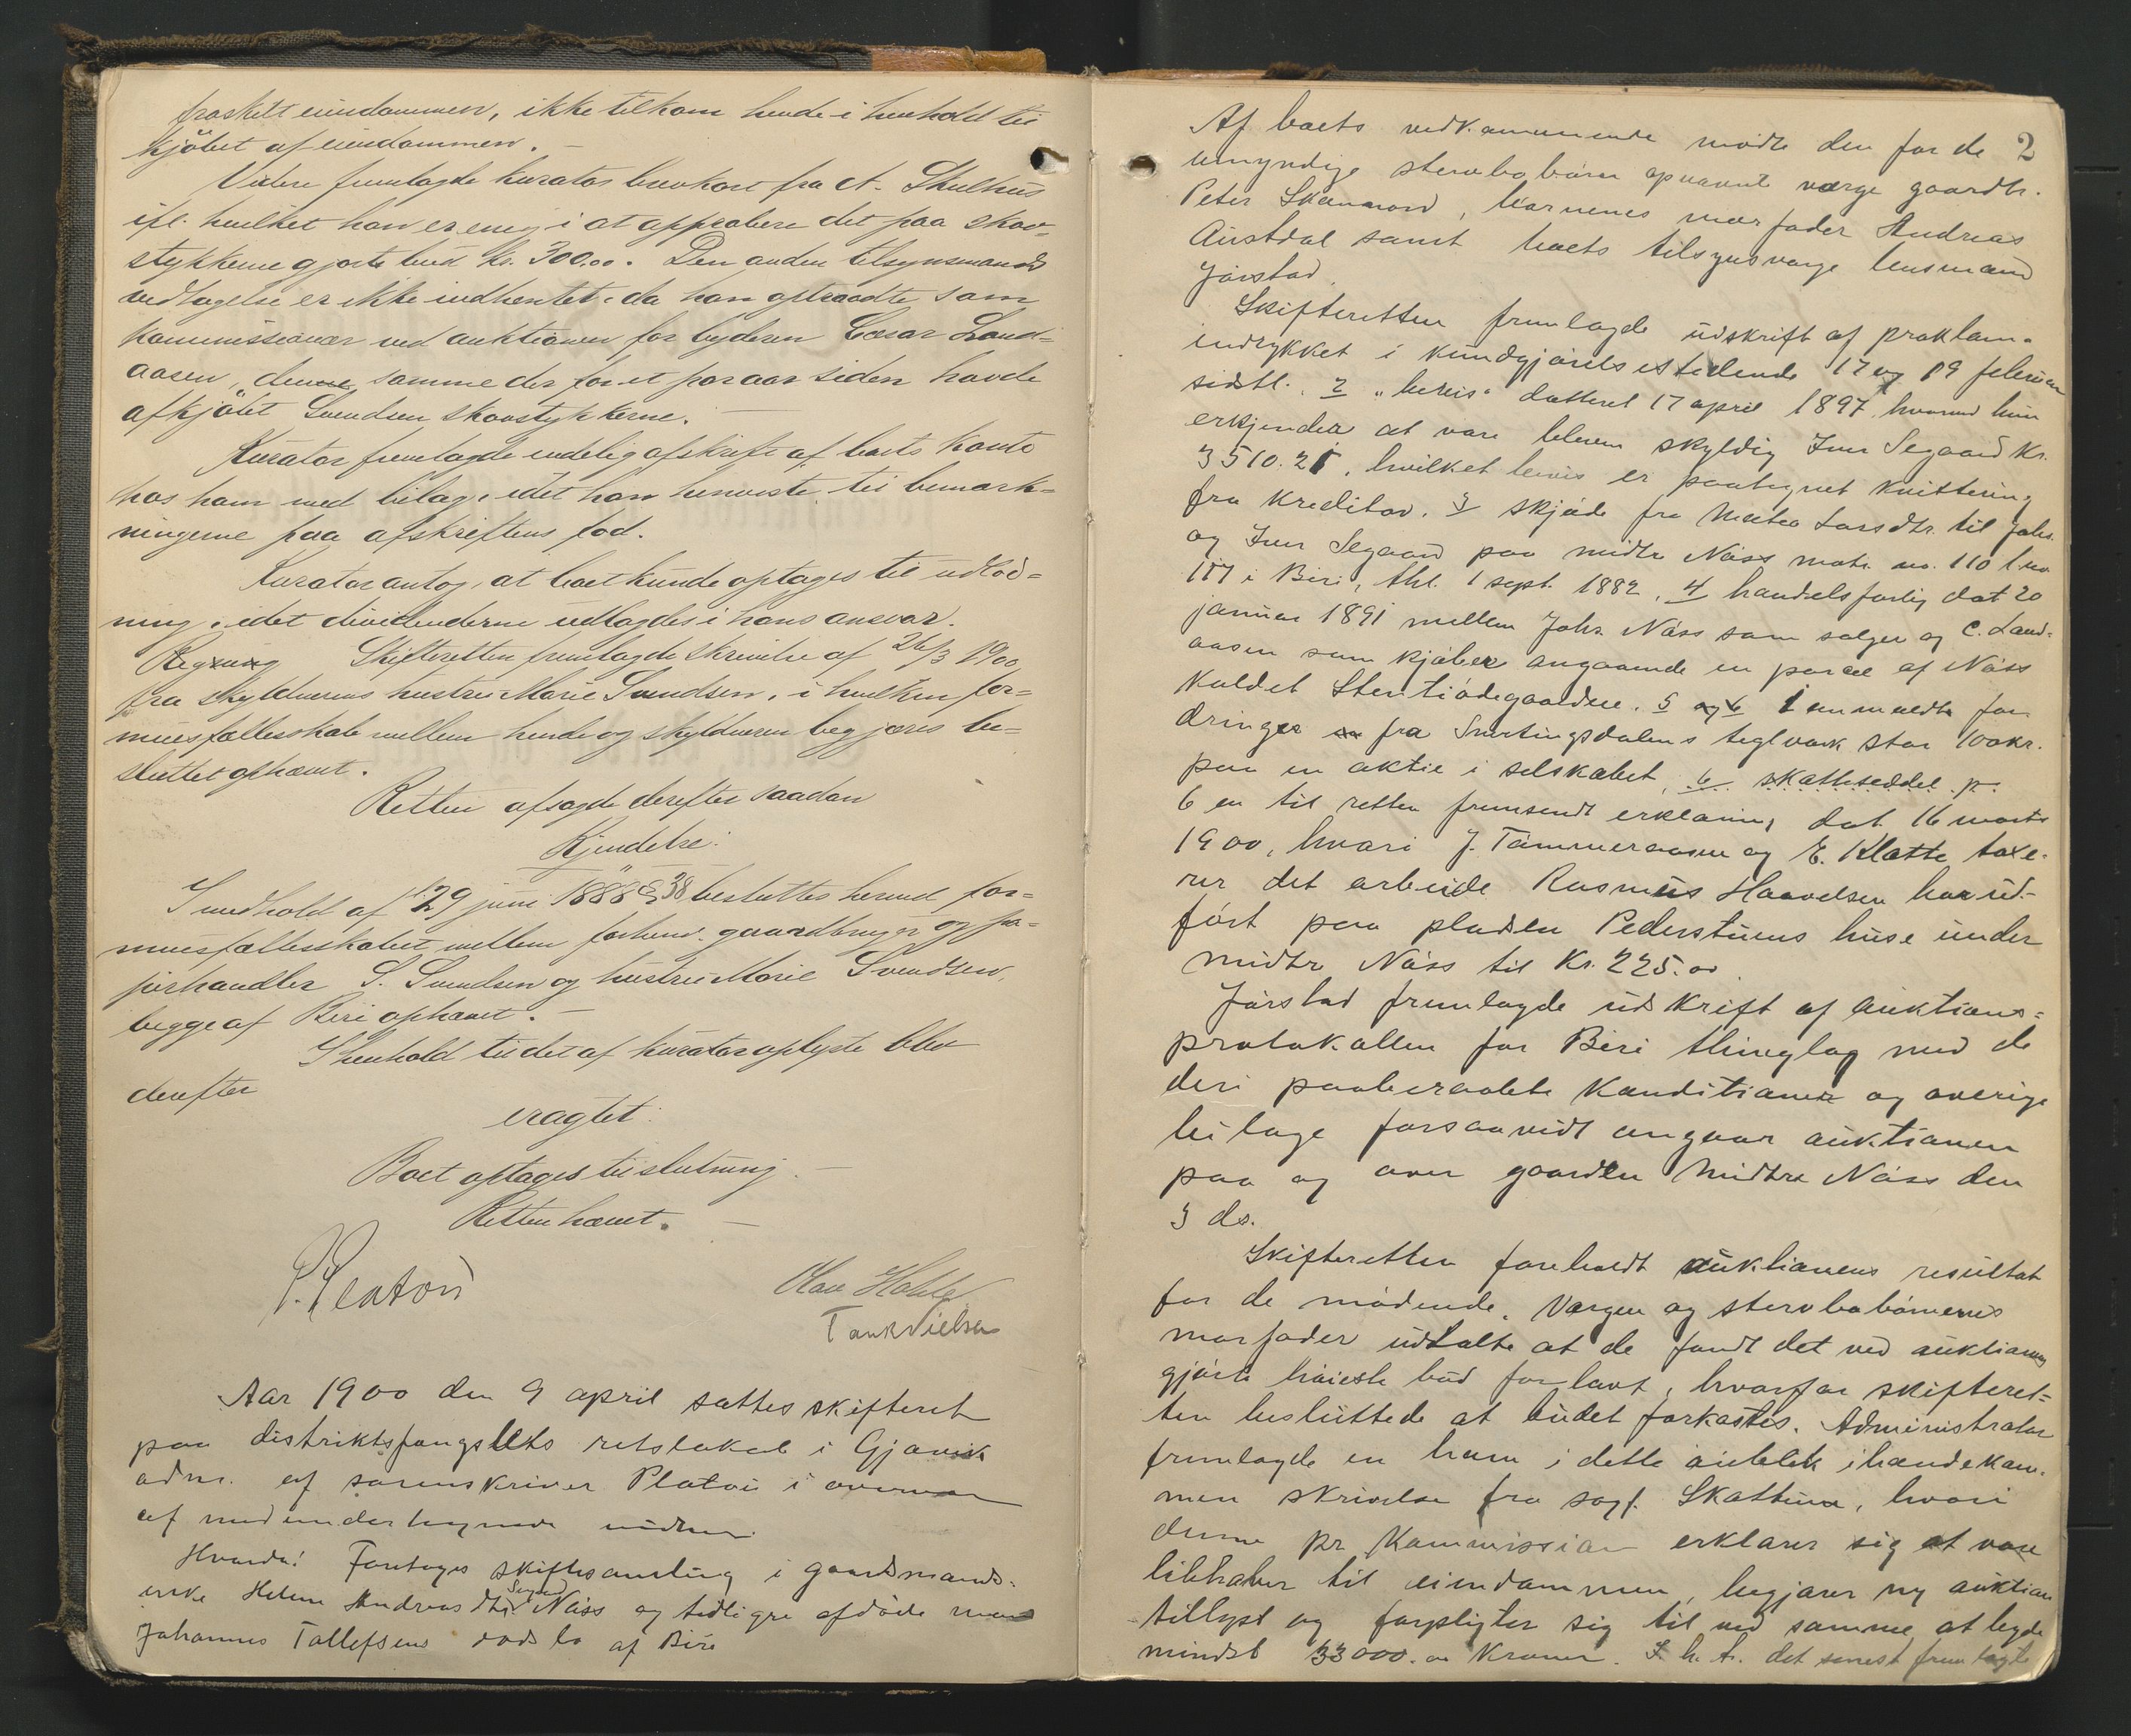 fraskilt eiendommen, ikke tilkom hende i henhold til
kjöbet af eiendommen. –
Videre fremlagde kurator brevkort fra A. Skulhus
ifl. hvilket han er enig i at approbere det paa skov=
stykkerne gjorte bud kr. 300.00. Den anden tilsynsmands
vedtagelse er ikke indhentet, da han optraadte som
kommissionær ved auktionen for byderen Cæsar Land=
aasen, denne samme der for et par aar siden havde
afkjöbt Svendsen skovstykkerne. –
Kurator fremlagde endelig afskrift af boets konto
hos ham med bilag, idet han henviste til bemærk=
ningerne paa afskriftens fod.
Kurator antog, at boet kunde optages til udlod=
ning, idet dividenderne udlagdes i hans ansvar.
Skifteretten fremlagde skrivelse af 26/3 1900
fra skyldnerens hustru Marie Svendsen, i hvilken for=
muesfællesskab mellem hende og skyldneren begjæres be=
sluttet ophævet.
Retten afsagde derefter saadan
Kjendelse:
I medhold af l. 29 juni 1888 § 38 besluttes herved for=
muesfællesskabet mellem forhenv. gaardbruger og pa=
pirhandler S. Svendsen og hustru Marie Svendsen,
begge af Biri ophævet. –
I henhold til det af kurator oplyste blev
derefter
eragtet:
Boet optages til slutning. –
Retten hævet. –
P. Platou
Olav Holste
Tank Nielsen
Aar 1900 den 9 april sattes skifteret
paa distriktsfængslets retslokale i Gjøvik
adm. af sorenskriver Platou i overvær
af medundertegnede vidner.
Hvorda! Foretoges skiftesamling i gaardmands=
enke Helene Andreasdtr. Segaard Næss og tidligere afdöde mand
Johannes Tollefsens dødsbo af Biri
2
Af boets vedkommende mödte den for de
umyndige stervbobörn opnævnte værge gaardbr.
Peter Skammord, börnenes morfader Andreas
Austdal samt boets tilsynsværge lensmand
Jörstad.
Skifteretten fremlagde udskrift af proklama
indrykket i kundgjörelsestidende 17 og 19 februar
sidstl. 2 "bevis" datteret 17 april 1897, hvorved hun
erkjender at være blevem skyldig Iver Segaard kr.
3510.21, hvilket bevis er paategnet kvittering
fra kreditor. 3 skjöde fra Mathea Larsdtr. til Johs.
og Iver Segaard paa midtre Næss matr. no. 110 l no
117 i Biri, thl. 1 sept. 1882, 4 handelsforlig dat 20
januar 1891 mellem Johs. Næss som sælger og C. Land=
aasen som kjöber angaaende en parcel af Næss
kaldet Stentiödegaarden. 5 anmeldte for
dringer fra Snertingsdalens teglværk stor 100 kr.
paa en aktie i selskabet, 6 skatteseddel p.
6 en til retten fremsendt erklæring dat 16 marts
1900, hvori J. Tömmeraasen og E. Kløtte taxe=
rer det arbeide Rasmus Haavelsen har ud=
fört paa pladsen Pederstuens huse under
midtre Næss til Kr. 225.00
Jörstad fremlagde udskrift af auktions=
protokollen for Biri thinglag med de
deri paaberaabte konditioner og øvrige
bilage forsaavidt angaar auktionen
paa og over gaarden Midtre Næss den
3 ds.
Skifteretten foreholdt auktionens resultat
for de mödende. Værgen og stervbobörnenes
morfader udtalte at de fandt det ved auktionen
gjorte höieste bud for lavt, hvorfor skifteret=
ten besluttede at budet forkastes. Administrator
fremlagde en ham i dette öieblik ihændekom=
men skrivelse fra sagf. Skattum, hvori
denne pr kommission erklærer sig at være
liebhaber til eiendommen, begjærer ny auktion
tillyst og forpligter sig til ved samme at byde
mindst 33000.00 Kroner. I h. t. det senest fremlagte